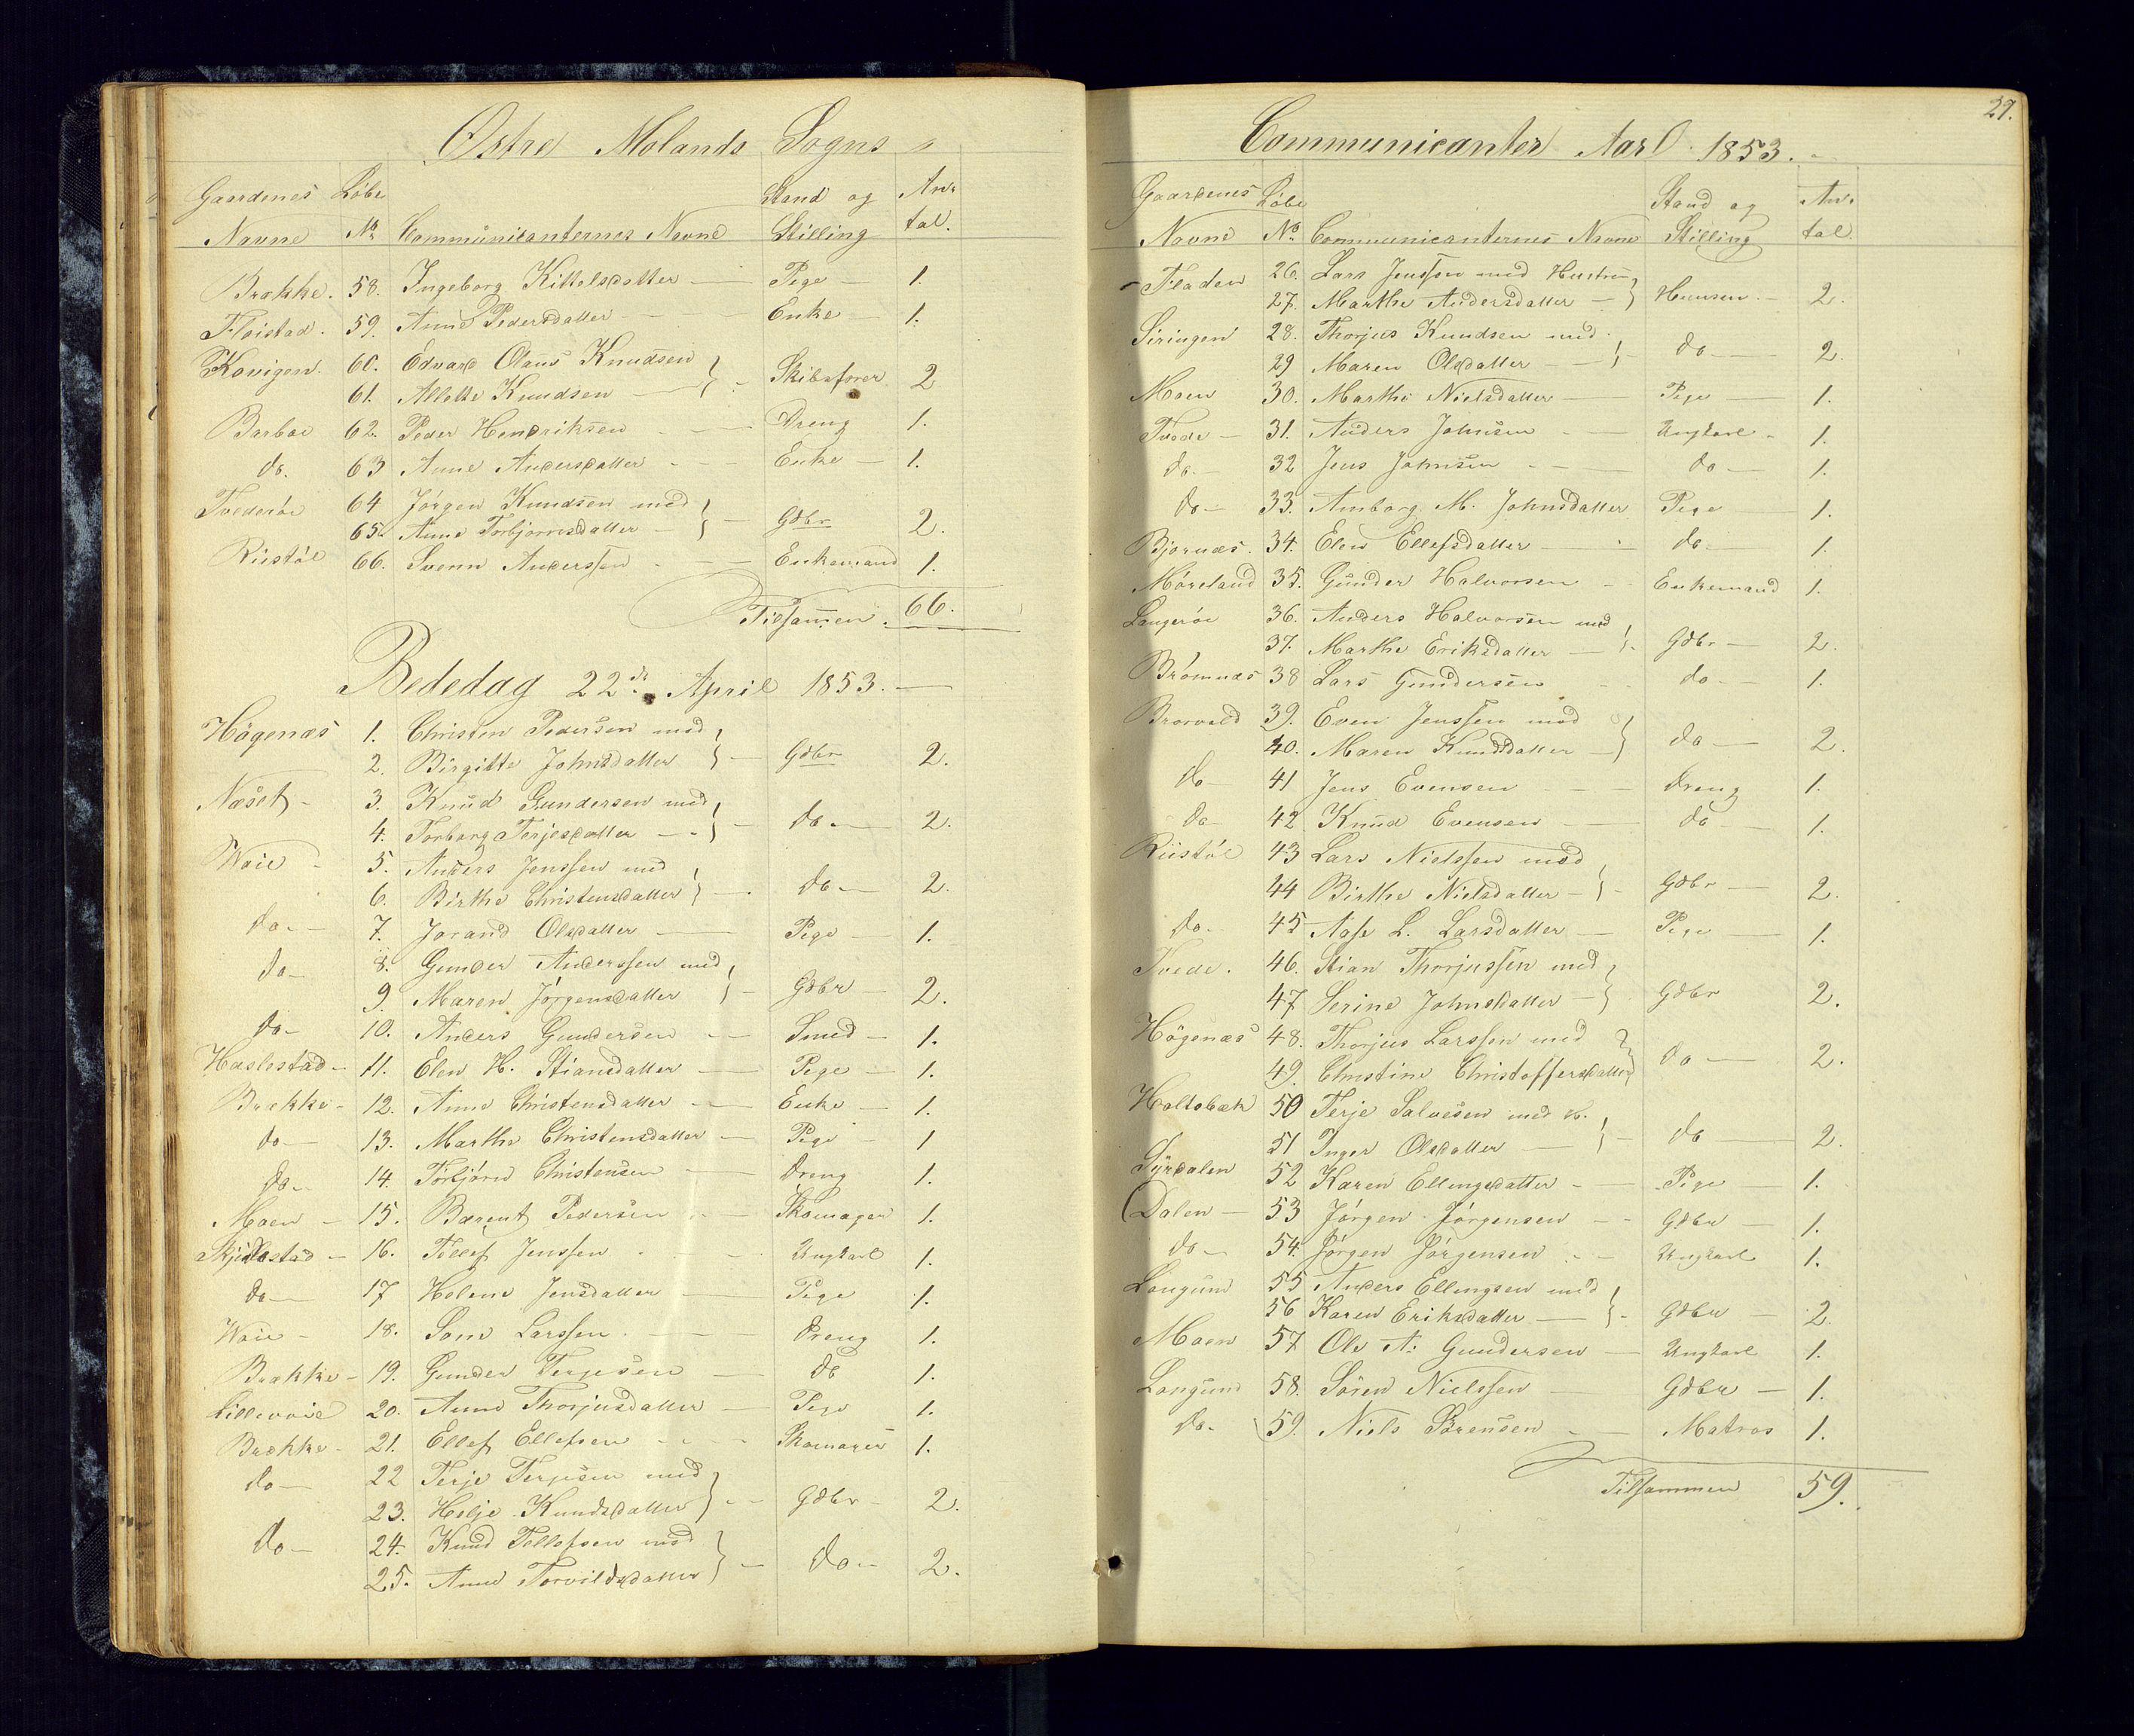 Østre Molands Sogns
Gaardenes Løbe Stand og An-
Navne No Communicanternes Navne Stilling tal.
Brække. 58. Ingeborg Kittelsdatter Pige 1.
Fløistad. 59. Anne Pedersdatter Enke 1.
Kovigen. 60. Edvard Olaus Knudsen
61. Allette Knudsen Skibsfører 2
Barboe 62. Peder Hendriksen Dreng 1.
do. 63 Anne Andersdatter Enke 1.
Tvederøe 64 Jørgen Knudsen med
65. Anne Torbjørnsdatter Gdbr 2.
Riistøl 66. Svenn Anderssen Enkemand 1.
Tilsammen. 66.
Bededag 22de April 1853.
Høgenæs 1. Christen Pedersen med
2. Birgitte Johnsdatter Gdbr 2.
Næset 3. Knud Gundersen med
4. Torborg Terjesdatter do 2.
Waie 5. Anders Jenssen med
6. Birthe Christensdatter do 2.
do 7. Jorand Olsdatter Pige 1.
do 8. Gunder Anderssen med
9. Maren Jørgensdatter Gdbr 2.
do 10. Anders Gundersen Smed 1.
Haslestad 11. Elen H. Stiansdatter Pige 1.
Brække 12. Anne Christensdatter Enke 1.
do 13. Marthe Christensdatter Pige 1
do 14. Torbjørn Christensen Dreng 1.
Moen 15. Barent Pedersen Skomager 1.
Skjulestad 16. Tellef Jenssen Ungkarl 1.
do 17 Helene Jensdatter Pige 1.
Waie 18. Lars Larssen Dreng 1.
Brække 19. Gunder Terjesen do 1.
Lillevaie 20. Anne Thorjusdatter Pige 1.
Brække 21. Ellef Ellefsen Skomager 1.
do 22 Terje Terjesen med
23. Helje Knudsdatter Gdbr 2.
do 24. Knud Tellefsen med
25. Anne Torvildsdatter do 2.
29.
Communicanter Aar 1853.
Gaardenes Løbe Stand og An-
Navne No Communicanternes Navne Stilling tal.
Fladen 26. Lars Jenssen med Hustru
27. Marthe Andersdatter Huusm. 2.
Siringen 28. Thorjus Knudsen med
29 Maren Olsdatter do 2.
Moen 30. Marthe Nielsdatter Pige 1.
Tvede 31. Anders Johnsen Ungkarl 1.
do 32 Jens Johnsen do 1.
do 33. Amborg M. Johnsdatter Pige 1.
Bjornæs. 34. Elen Ellefsdatter do 1.
Møreland 35. Gunder Halvorsen Enkemand 1.
Langerøe 36. Anders Halvorsen med
37. Marthe Eriksdatter Gdbr 2.
Brømnæs 38 Lars Gundersen do 1.
Brorvold 39. Even Jenssen med
40. Maren Knudsdatter do 2.
do 41 Jens Evensen Dreng 1.
do 42 Knud Evensen do 1.
Riistøl 43 Lars Nielssen med
44 Birthe Nielsdatter Gdbr 2.
do. 45 Aase L. Larsdatter Pige 1.
Tvede. 46. Stian Thorjussen med
47 Serine Johnsdatter Gdbr 2.
Høgenæs 48. Thorjus Larssen med
49. Christine Christoffersdatter do 2.
Holtebæk 50 Terje Salvesen med
51 Inger Olsdatter do 2.
Syrdalen 52 Karen Ellingsdatter Pige 1.
Dalen 53 Jørgen Jørgensen Gdbr 1.
do 54. Jørgen Jørgensen Ungkarl 1.
Longum 55 Anders Ellingsen med
56 Karen Eriksdatter Gdbr 2.
Moen 57 Ole A. Gundersen Ungkarl 1.
Longum 58. Søren Nielssen Gdbr 1.
Do. 59. Niels Sørensen Matros 1.
Tilsammen 59.